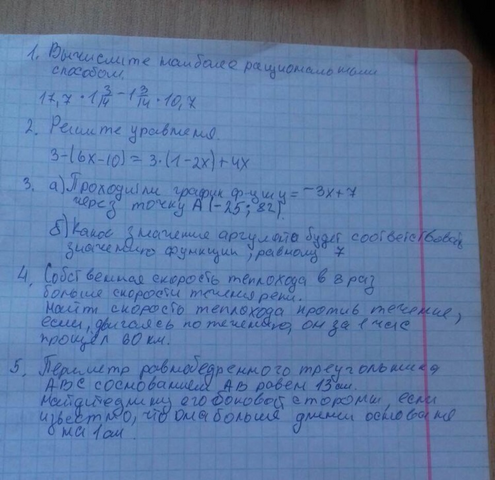 1. Вычислите наиболее рациональным
способом.
17,7 · 1 3/14 - 1 3/14 · 10,7
2. Решите уравнения
3-(6x-10) = 3·(1-2x)+4x
3. а) Проходит ли график ф-ции y = -3x+7
через точку А (-25; 82)
б) Какое значение аргумента будет соответствовать
значению функции, равному 7
4. Собственная скорость теплохода в 8 раз
больше скорости течения реки.
Найти скорость теплохода против течение,
если, двигаясь по течению, он за 1 час
прошёл 60 км.
5. Периметр равнобедренного треугольника
ABC с основанием AB равен 13 см.
Найдите длину его боковой стороны, если
известно, что она больше длины основания
на 1 см.